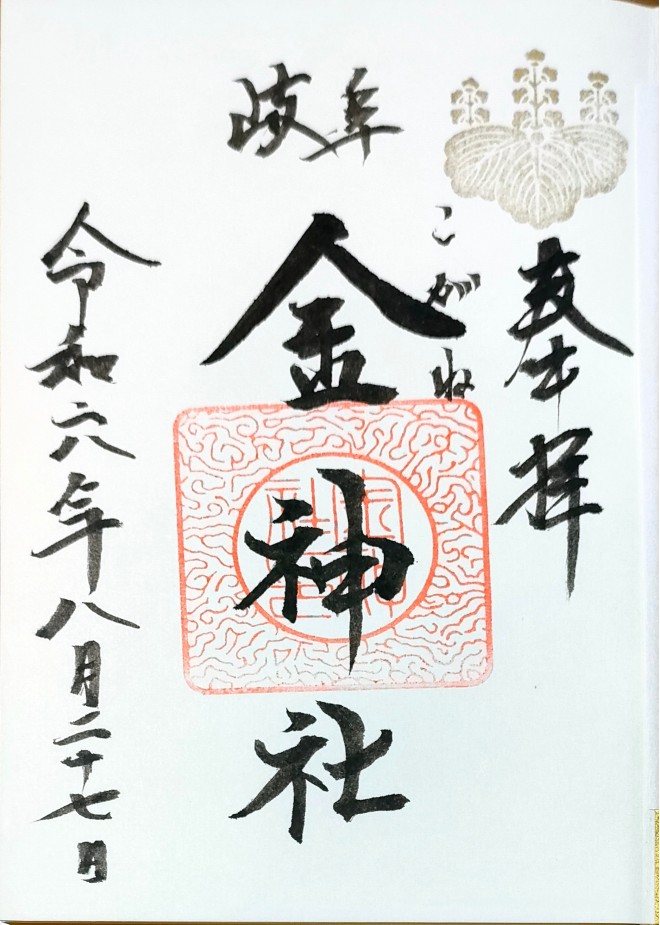 奉拝
岐阜
こがね
金神社
令和六年八月二十七日